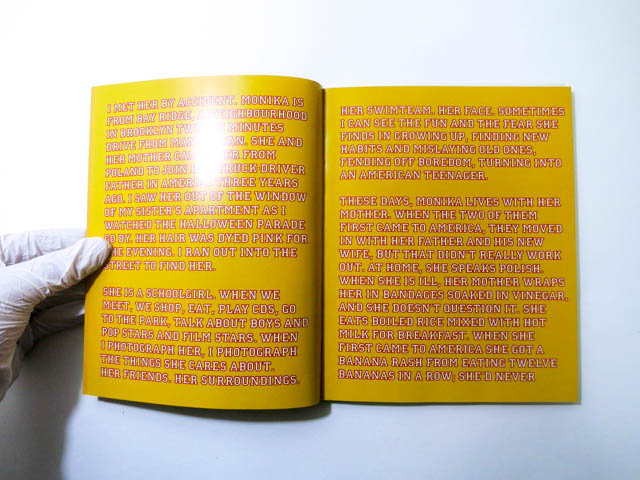 I MET HER BY ACCIDENT. MONIKA IS
FROM BAY RIDGE, A NEIGHBOURHOOD
IN BROOKLYN MINUTES
DRIVE FROM MANHATTAN. SHE AND
HER MOTHER CAME OVER FROM
POLAND TO JOIN TRUCK DRIVER
FATHER IN AMERICA THREE YEARS
AGO. I SAW HER OUT OF THE WINDOW
OF MY SISTER'S APARTMENT AS I
WATCHED THE HALLOWEEN PARADE
GO BY. HER HAIR WAS DYED PINK FOR
THE EVENING. I RAN OUT INTO THE
STREET TO FIND HER.
SHE IS A SCHOOLGIRL. WHEN WE
MEET, WE SHOP, EAT, PLAY CDS, GO
TO THE PARK, TALK ABOUT BOYS AND
POP STARS AND FILM STARS. WHEN
I PHOTOGRAPH HER, I PHOTOGRAPH
THE THINGS SHE CARES ABOUT.
HER FRIENDS. HER SURROUNDINGS.
HER SWIMTEAM. HER FACE. SOMETIMES
I CAN SEE THE FUN AND THE FEAR SHE
FINDS IN GROWING UP, FINDING NEW
HABITS AND MISLAYING OLD ONES,
FENDING OFF BOREDOM, TURNING INTO
AN AMERICAN TEENAGER.
THESE DAYS, MONIKA LIVES WITH HER
MOTHER. WHEN THE TWO OF THEM
FIRST CAME TO AMERICA, THEY MOVED
IN WITH HER FATHER AND HIS NEW
WIFE, BUT THAT DIDN'T REALLY WORK
OUT. AT HOME, SHE SPEAKS POLISH.
WHEN SHE IS ILL, HER MOTHER WRAPS
HER IN BANDAGES SOAKED IN VINEGAR,
AND SHE DOESN'T QUESTION IT. SHE
EATS BOILED RICE MIXED WITH HOT
MILK FOR BREAKFAST. WHEN SHE
FIRST CAME TO AMERICA SHE GOT A
BANANA RASH FROM EATING TWELVE
BANANAS IN A ROW; SHE'D NEVER